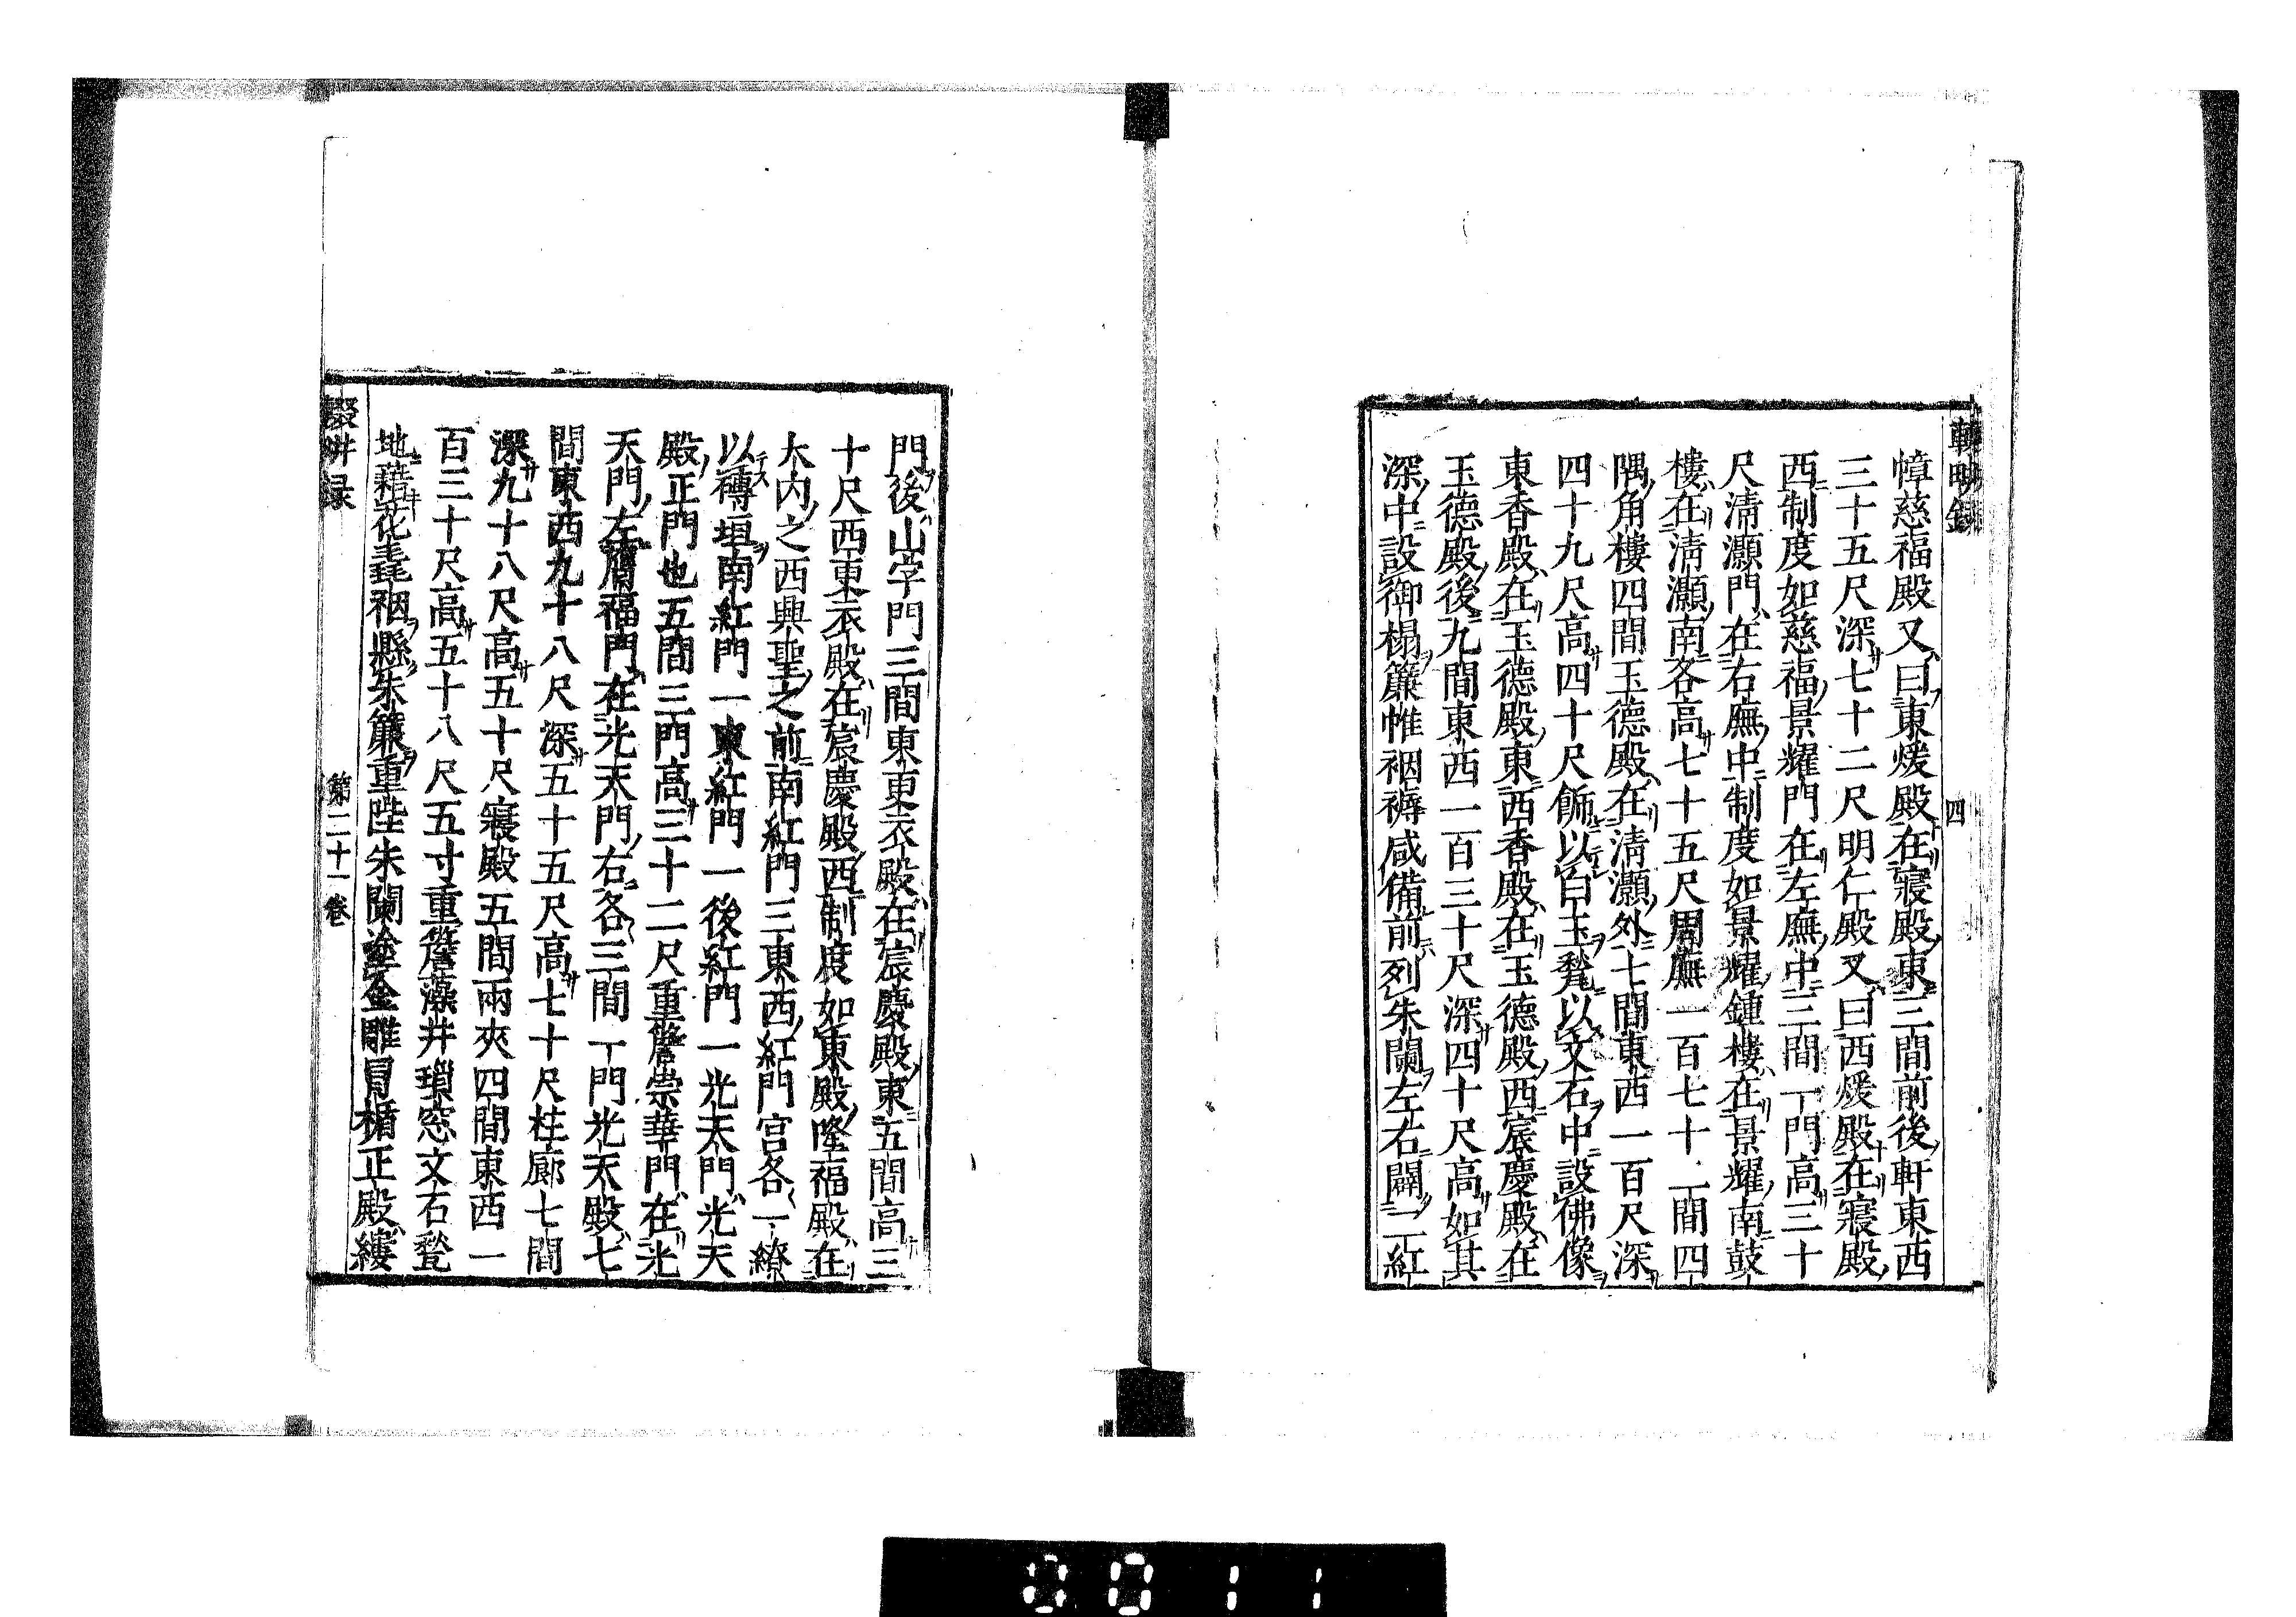 輟畊録
四
幛慈福殿又曰東煖殿在寢殿東三間前後軒東西
三十五尺深七十二尺明仁殿又曰西煖殿在寢殿
西制度如慈福景耀門在左廡中三間一門高三十
尺淸灝門在右廡中制度如景耀鍾樓在景耀南鼓
樓在淸灝南各高七十五尺周廡一百七十二間四
隅角樓四間玉德殿在淸灝外七間東西一百尺深
四十九尺高四十尺飾以白玉甃以文石中設佛像
東香殿在玉德殿東西香殿在玉德殿西宸慶殿在
玉德殿後九間東西一百三十尺深四十尺高如其
深中設御榻簾帷裀褥咸備前列朱闌左右闢二紅
門後山字門三間東更衣殿在宸慶殿東五間高三
十尺西更衣殿在宸慶殿西制度如東殿隆福殿在
大內之西興聖之前南紅門三東西紅門宮各一繚
以磚垣南紅門一東紅門一後紅門一光天門光天
殿正門也五間三門高三十二尺重簷崇華門在光
天門左膺福門在光天門右各三間一門光天殿七
間東西九十八尺深五十五尺高七十尺柱廊七間
深九十八尺高五十尺寢殿五間兩夾四間東西一
百三十尺高五十八尺五寸重簷藻井瑣窓文石甃
地藉花毳裀縣朱簾重陛朱闌塗金雕冐楯正殿縷
輟畊録
第二十一卷
0011